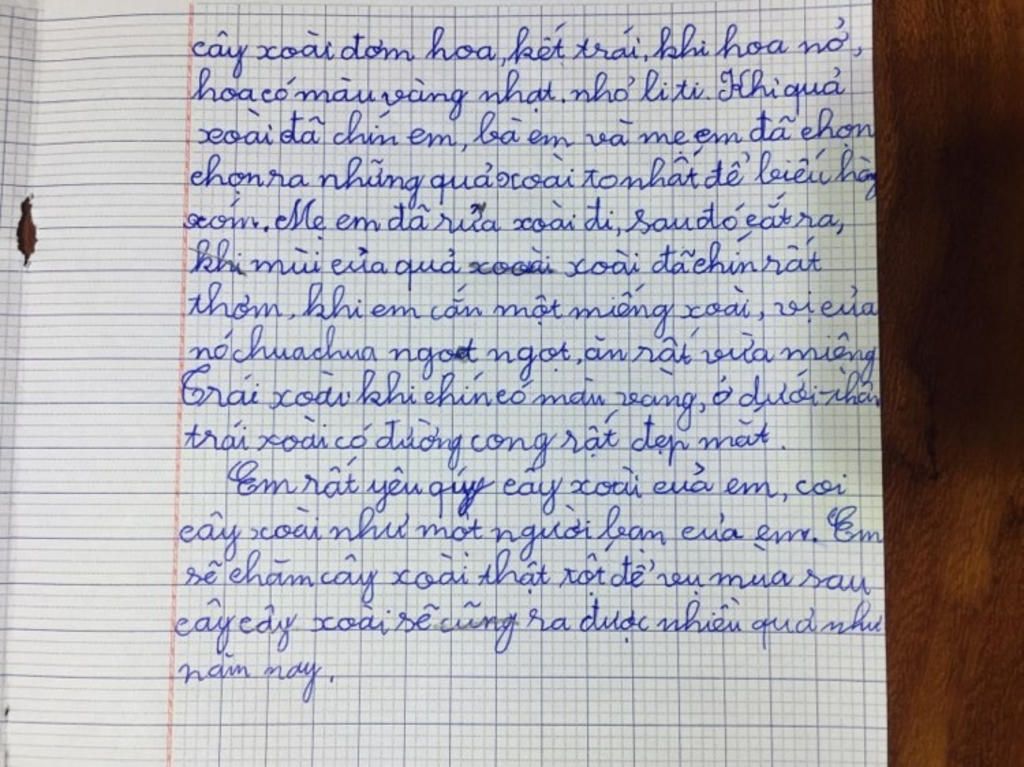 cây xoài đơm hoa, kết trái, khi hoa nở,
hoa có màu vàng nhạt, nhỏ li ti. Khi quả
xoài đã chín em, bà em và mẹ em đã chọn
chọn ra những quả xoài to nhất để biếu hàng
xóm. Mẹ em đã rửa xoài đi, sau đó cắt ra,
khi mùi của quả xoài đã chín rất
thơm, khi em cắn một miếng xoài, vị của
nó chua chua ngọt ngọt, ăn rất vừa miệng
Trái xoài khi chín có màu vàng, ở dưới thân
trái xoài có đường cong rất đẹp mắt.
Em rất yêu quý cây xoài của em, coi
cây xoài như một người bạn của em. Em
sẽ chăm cây xoài thật tốt để vụ mùa sau
cây cây xoài sẽ cũng ra được nhiều quả như
năm nay.